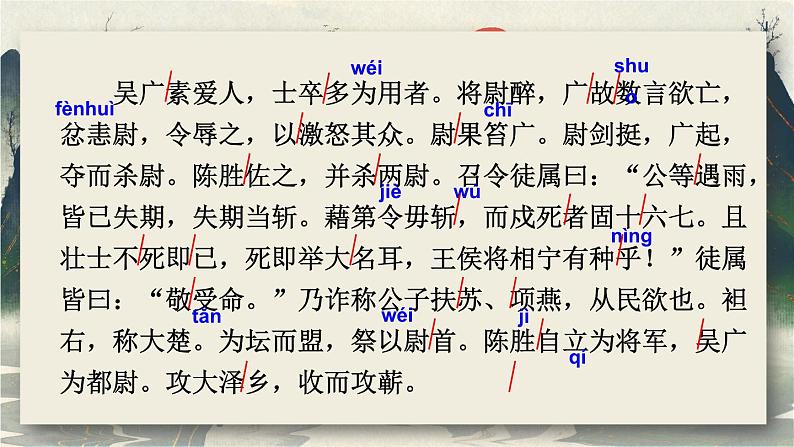 wéi shu
吴广素爱人，士卒多为用者。将尉醉，广故数言欲亡，
fènhuì chī o
忿恚尉，令辱之，以激怒其众。尉果笞广。尉剑挺，广起，
夺而杀尉。陈胜佐之，并杀两尉。召令徒属曰：“公等遇雨，
jiè wú
皆已失期，失期当斩。藉第令毋斩，而戍死者固十六七。且
nìng
壮士不死即已，死即举大名耳，王侯将相宁有种乎！”徒属
皆曰：“敬受命。”乃诈称公子扶苏、项燕，从民欲也。袒
tǎn wéi jì
右，称大楚。为坛而盟，祭以尉首。陈胜自立为将军，吴广
qí
为都尉。攻大泽乡，收而攻蕲。